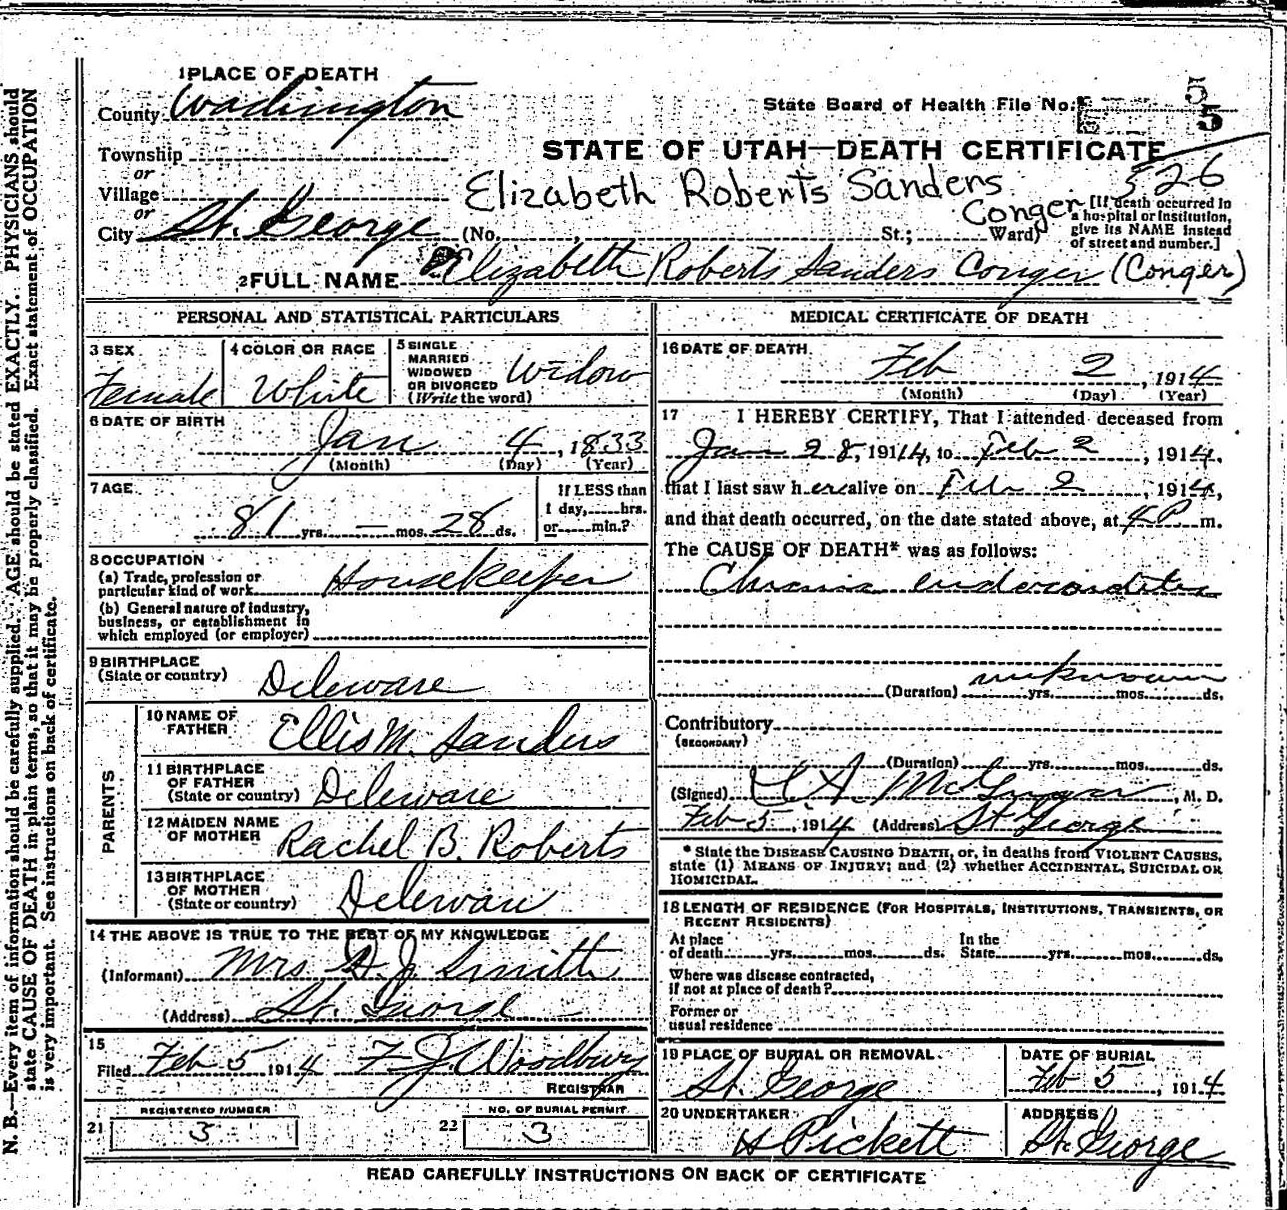 1 PLACE OF DEATH
County Washington
State Board of Health File No. 5
5
Township
or
STATE OF UTAH—DEATH CERTIFICATE
Village
Elizabeth Roberts Sanders
326
or
Conger
City St. George (No. , St.; Ward)
[If death occurred in
a hospital or institution,
give its NAME instead
of street and number.]
2 FULL NAME Elizabeth Roberts Sanders Conger (Conger)
PERSONAL AND STATISTICAL PARTICULARS
3 SEX
Female
4 COLOR OR RACE
White
5 SINGLE
MARRIED
WIDOWED
OR DIVORCED
(Write the word)
Widow
6 DATE OF BIRTH
Jan 4, 1833
(Month) (Day) (Year)
7 AGE
81 yrs. — mos. 28 ds.
If LESS than
1 day, hrs.
or min.?
8 OCCUPATION
(a) Trade, profession or
particular kind of work Housekeeper
(b) General nature of industry,
business, or establishment in
which employed (or employer)
9 BIRTHPLACE
(State or country) Deleware
PARENTS
10 NAME OF
FATHER Ellis M. Sanders
11 BIRTHPLACE
OF FATHER
(State or country) Deleware
12 MAIDEN NAME
OF MOTHER Rachel B. Roberts
13 BIRTHPLACE
OF MOTHER
(State or country) Deleware
14 THE ABOVE IS TRUE TO THE BEST OF MY KNOWLEDGE
(Informant) Mrs J Smith
(Address) St. George
15
Filed Feb 5 1914 F J Woodbury
REGISTRAR
REGISTERED NUMBER NO. OF BURIAL PERMIT
21 3 22 3
MEDICAL CERTIFICATE OF DEATH
16 DATE OF DEATH
Feb 2, 1914
(Month) (Day) (Year)
17 I HEREBY CERTIFY, That I attended deceased from
Jan 28, 1914, to Feb 2, 1914,
that I last saw her alive on Feb 2, 1914,
and that death occurred, on the date stated above, at 4 P m.
The CAUSE OF DEATH* was as follows:
Chronic endocarditis
unknown
(Duration) yrs. mos. ds.
Contributory
(SECONDARY)
(Duration) yrs. mos. ds.
(Signed) , M. D.
Feb 5, 1914 (Address) St George
* State the DISEASE CAUSING DEATH, or, in deaths from VIOLENT CAUSES,
state (1) MEANS OF INJURY; and (2) whether ACCIDENTAL, SUICIDAL OR
HOMICIDAL.
18 LENGTH OF RESIDENCE (FOR HOSPITALS, INSTITUTIONS, TRANSIENTS, OR
RECENT RESIDENTS)
At place
of death yrs. mos. ds.
In the
State yrs. mos. ds.
Where was disease contracted,
if not at place of death?
Former or
usual residence
19 PLACE OF BURIAL OR REMOVAL
St. George
DATE OF BURIAL
Feb 5, 1914
20 UNDERTAKER
H Pickett
ADDRESS
St. George
READ CAREFULLY INSTRUCTIONS ON BACK OF CERTIFICATE
N. B.—Every item of information should be carefully supplied. AGE should be stated EXACTLY. PHYSICIANS should
state CAUSE OF DEATH in plain terms, so that it may be properly classified. Exact statement of OCCUPATION
is very important. See instructions on back of certificate.